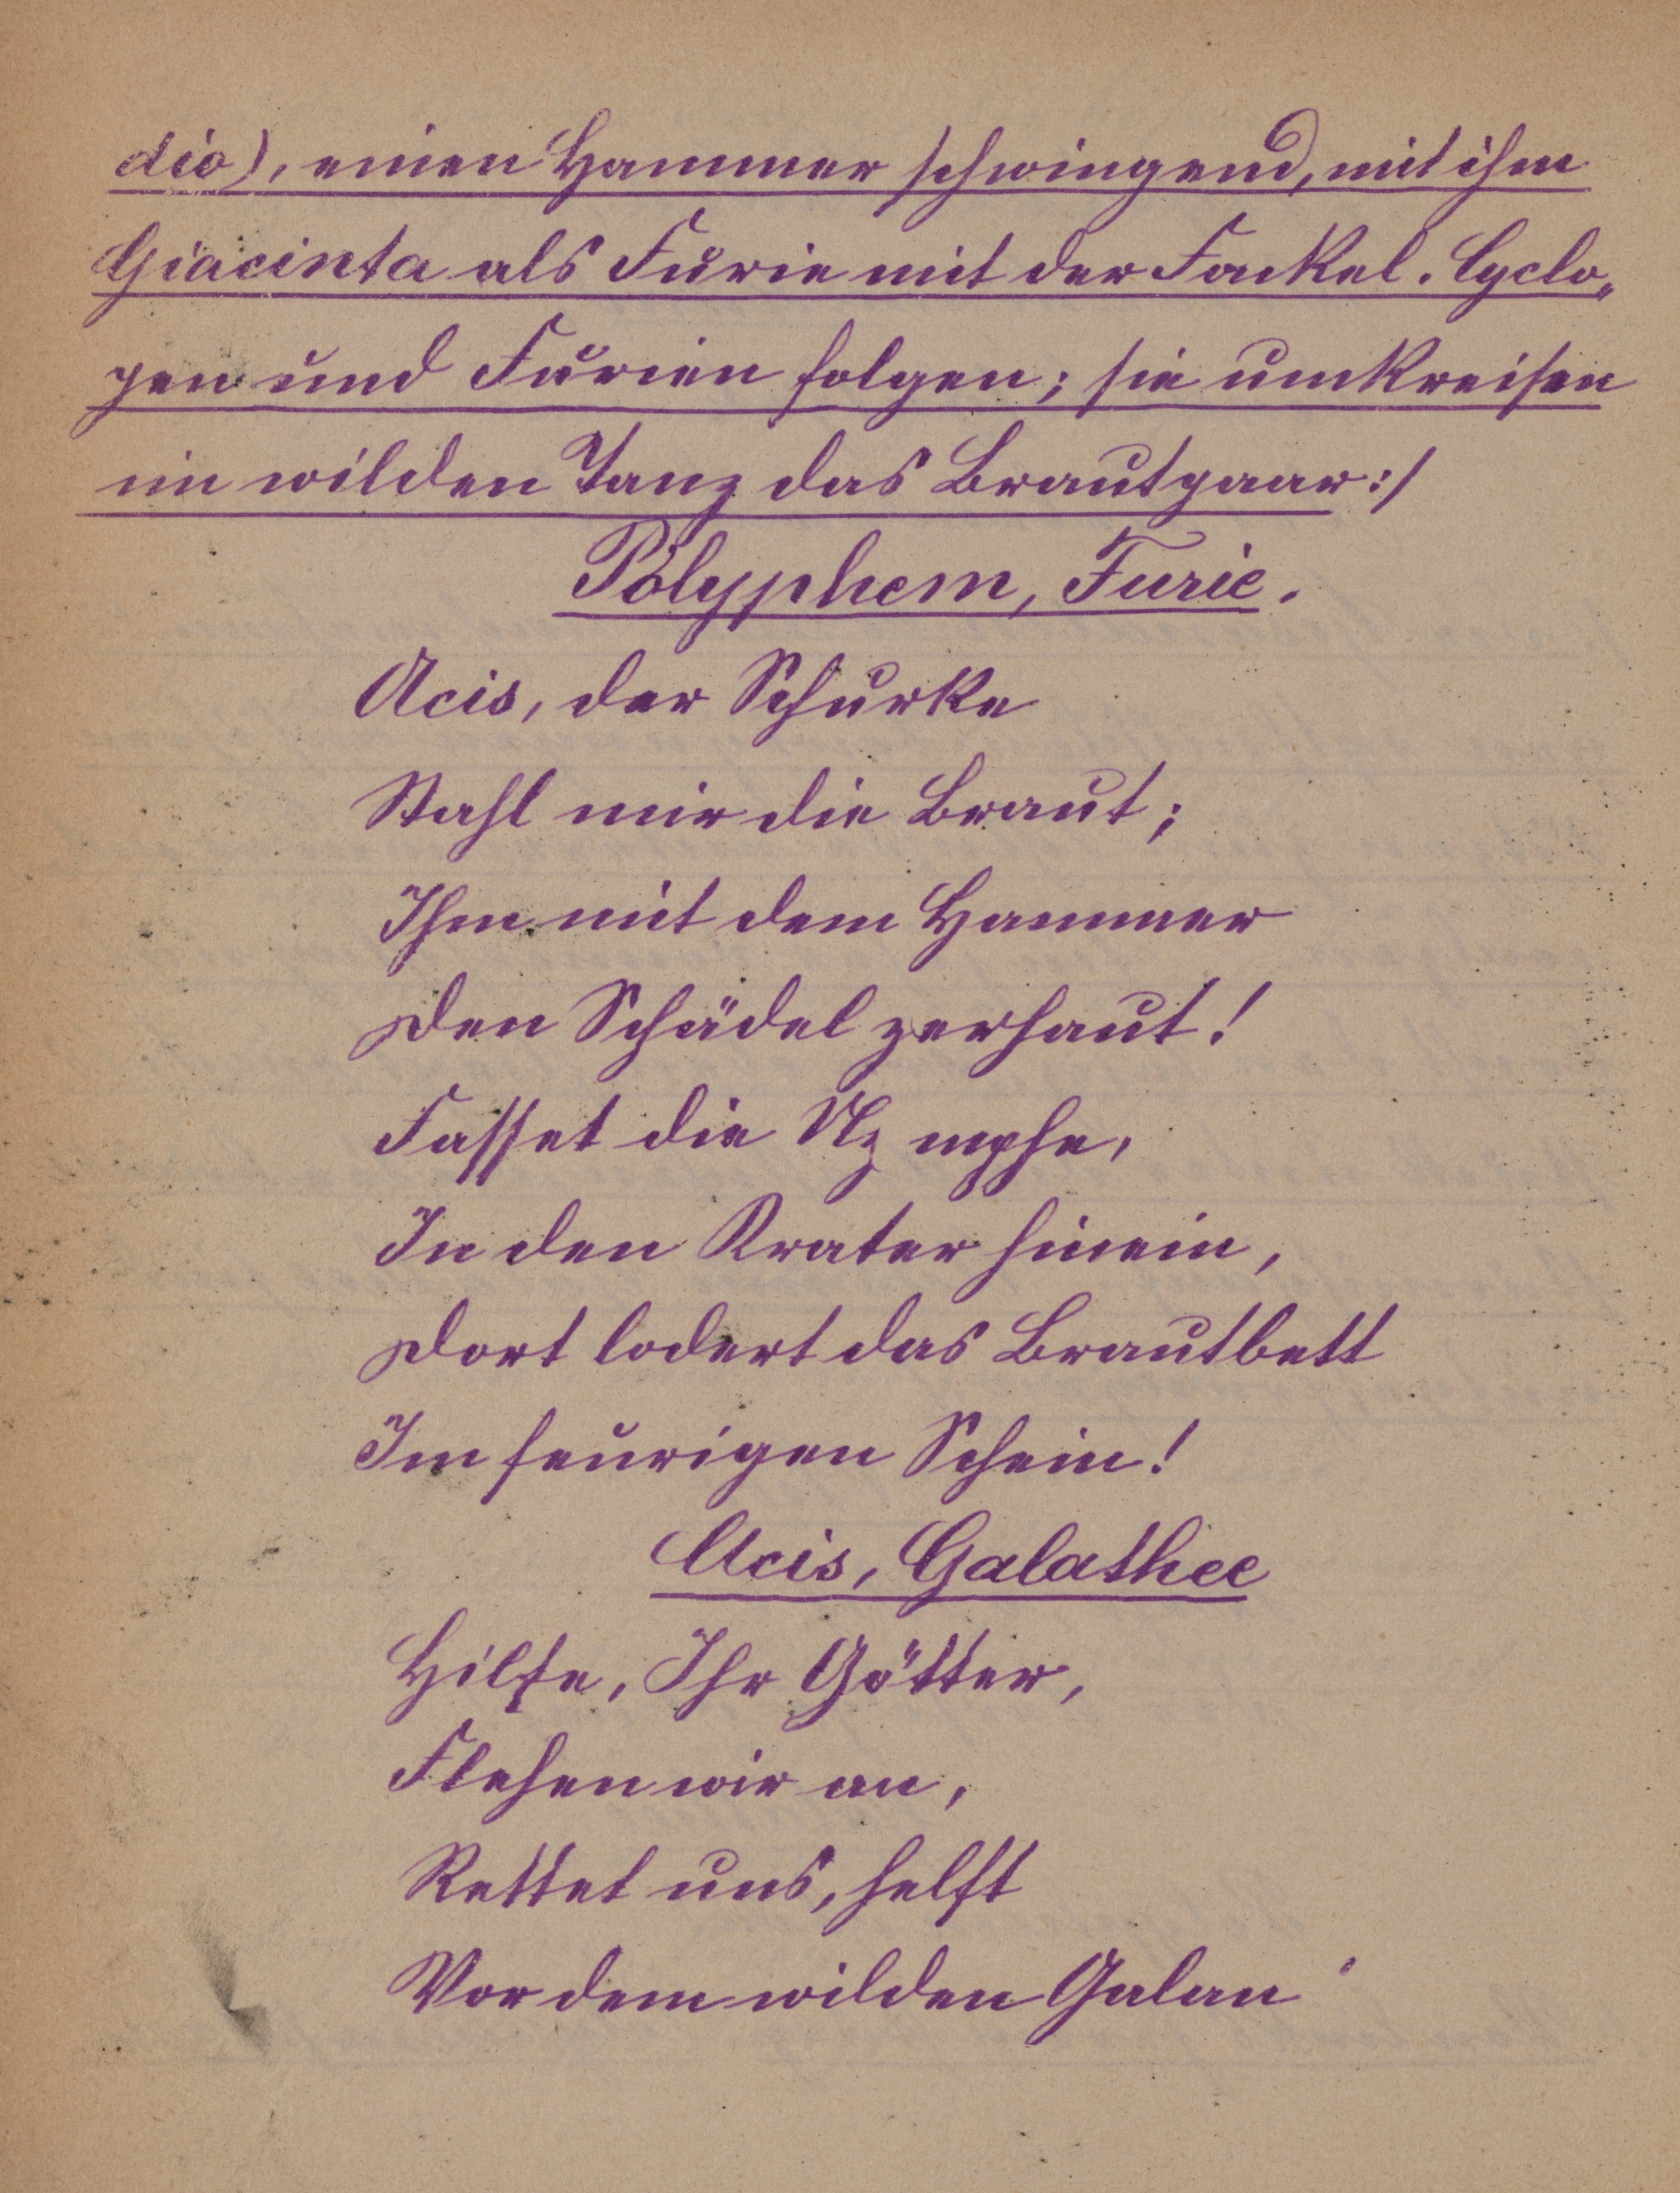 dio), einen Hammer schwingend, mit ihm
Giacinta als Furie mit der Fackel. Cyclo„
pen und Furien folgen; sie umkreisen
im wilden Tanz das Brautpaar :/
Polyphem, Furie.
Acis, der Schurke
Stahl mir die Braut;
Ihm mit dem Hammer
Den Schädel zerhaut!
Fasset die Nymphe,
In den Krater hinein,
Dort lodert das Brautbett
Im feurigen Schein!
Acis, Galathee
Hilfe, Ihr Götter,
Flehen wir an,
Rettet uns, helft
Vor dem wilden Galan